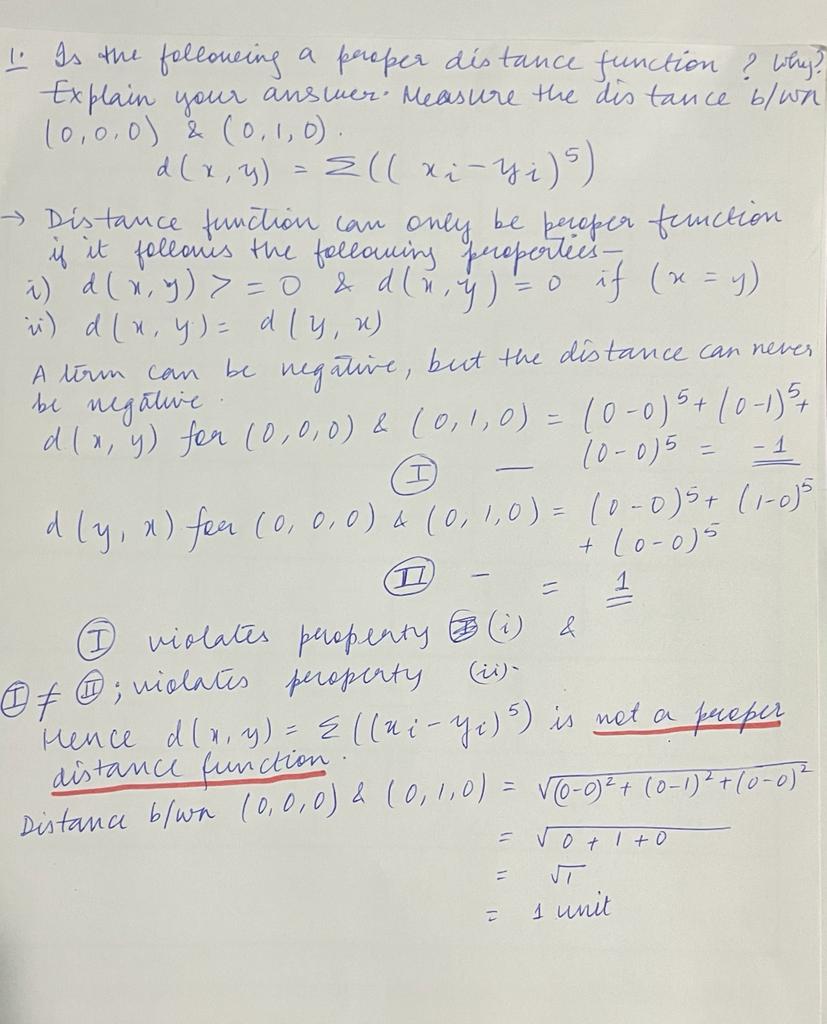 1. Is the following a proper distance function? Why?
Explain your answer. Measure the distance b/wn
(0,0,0) & (0,1,0).
d(x,y) = Σ((xi-yi)^5)
→ Distance function can only be proper function
if it follows the following properties—
i) d(x,y) >=0 & d(x,y)=0 if (x=y)
ii) d(x,y) = d(y,x)
A term can be negative, but the distance can never
be negative.
d(x,y) for (0,0,0) & (0,1,0) = (0-0)^5+(0-1)^5+
(0-0)^5 = -1
I —
d(y,x) for (0,0,0) & (0,1,0) = (0-0)^5+(1-0)^5
+ (0-0)^5
II - = 1
I violates property (i) &
I ≠ II; violates property (ii).
Hence d(x,y) = Σ((xi-yi)^5) is not a proper
distance function.
Distance b/wn (0,0,0) & (0,1,0) = √(0-0)²+(0-1)²+(0-0)²
= √0+1+0
= √1
= 1 unit